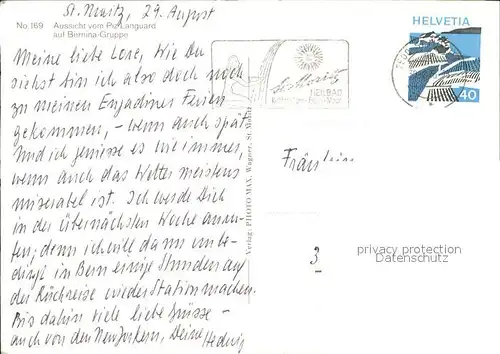 St. Moritz, 29. August
No. 169 Aussicht vom Piz Languard
auf Bernina-Gruppe
Meine liebe Lore, Wie Du
siehst bin ich also doch noch
zu meinen Engadiner Ferien
gekommen, - wenn auch spät
Und ich geniesse es wie immer,
wenn auch das Wetter meistens
miserabel ist. Ich werde Dich
in der übernächsten Woche anru-
fen; denn ich will dann unbe-
dingt in Bern einige Stunden auf
der Rückreise wieder Station machen.
Bis dahin viele liebe Grüsse -
auch von den New Yorkern, Deine Hedwig
Verlag: PHOTO MAX, Wagner, St. Moritz
St. Moritz
HEILBAD
HELVETIA
40
Fräulein
3
privacy protection
Datenschutz